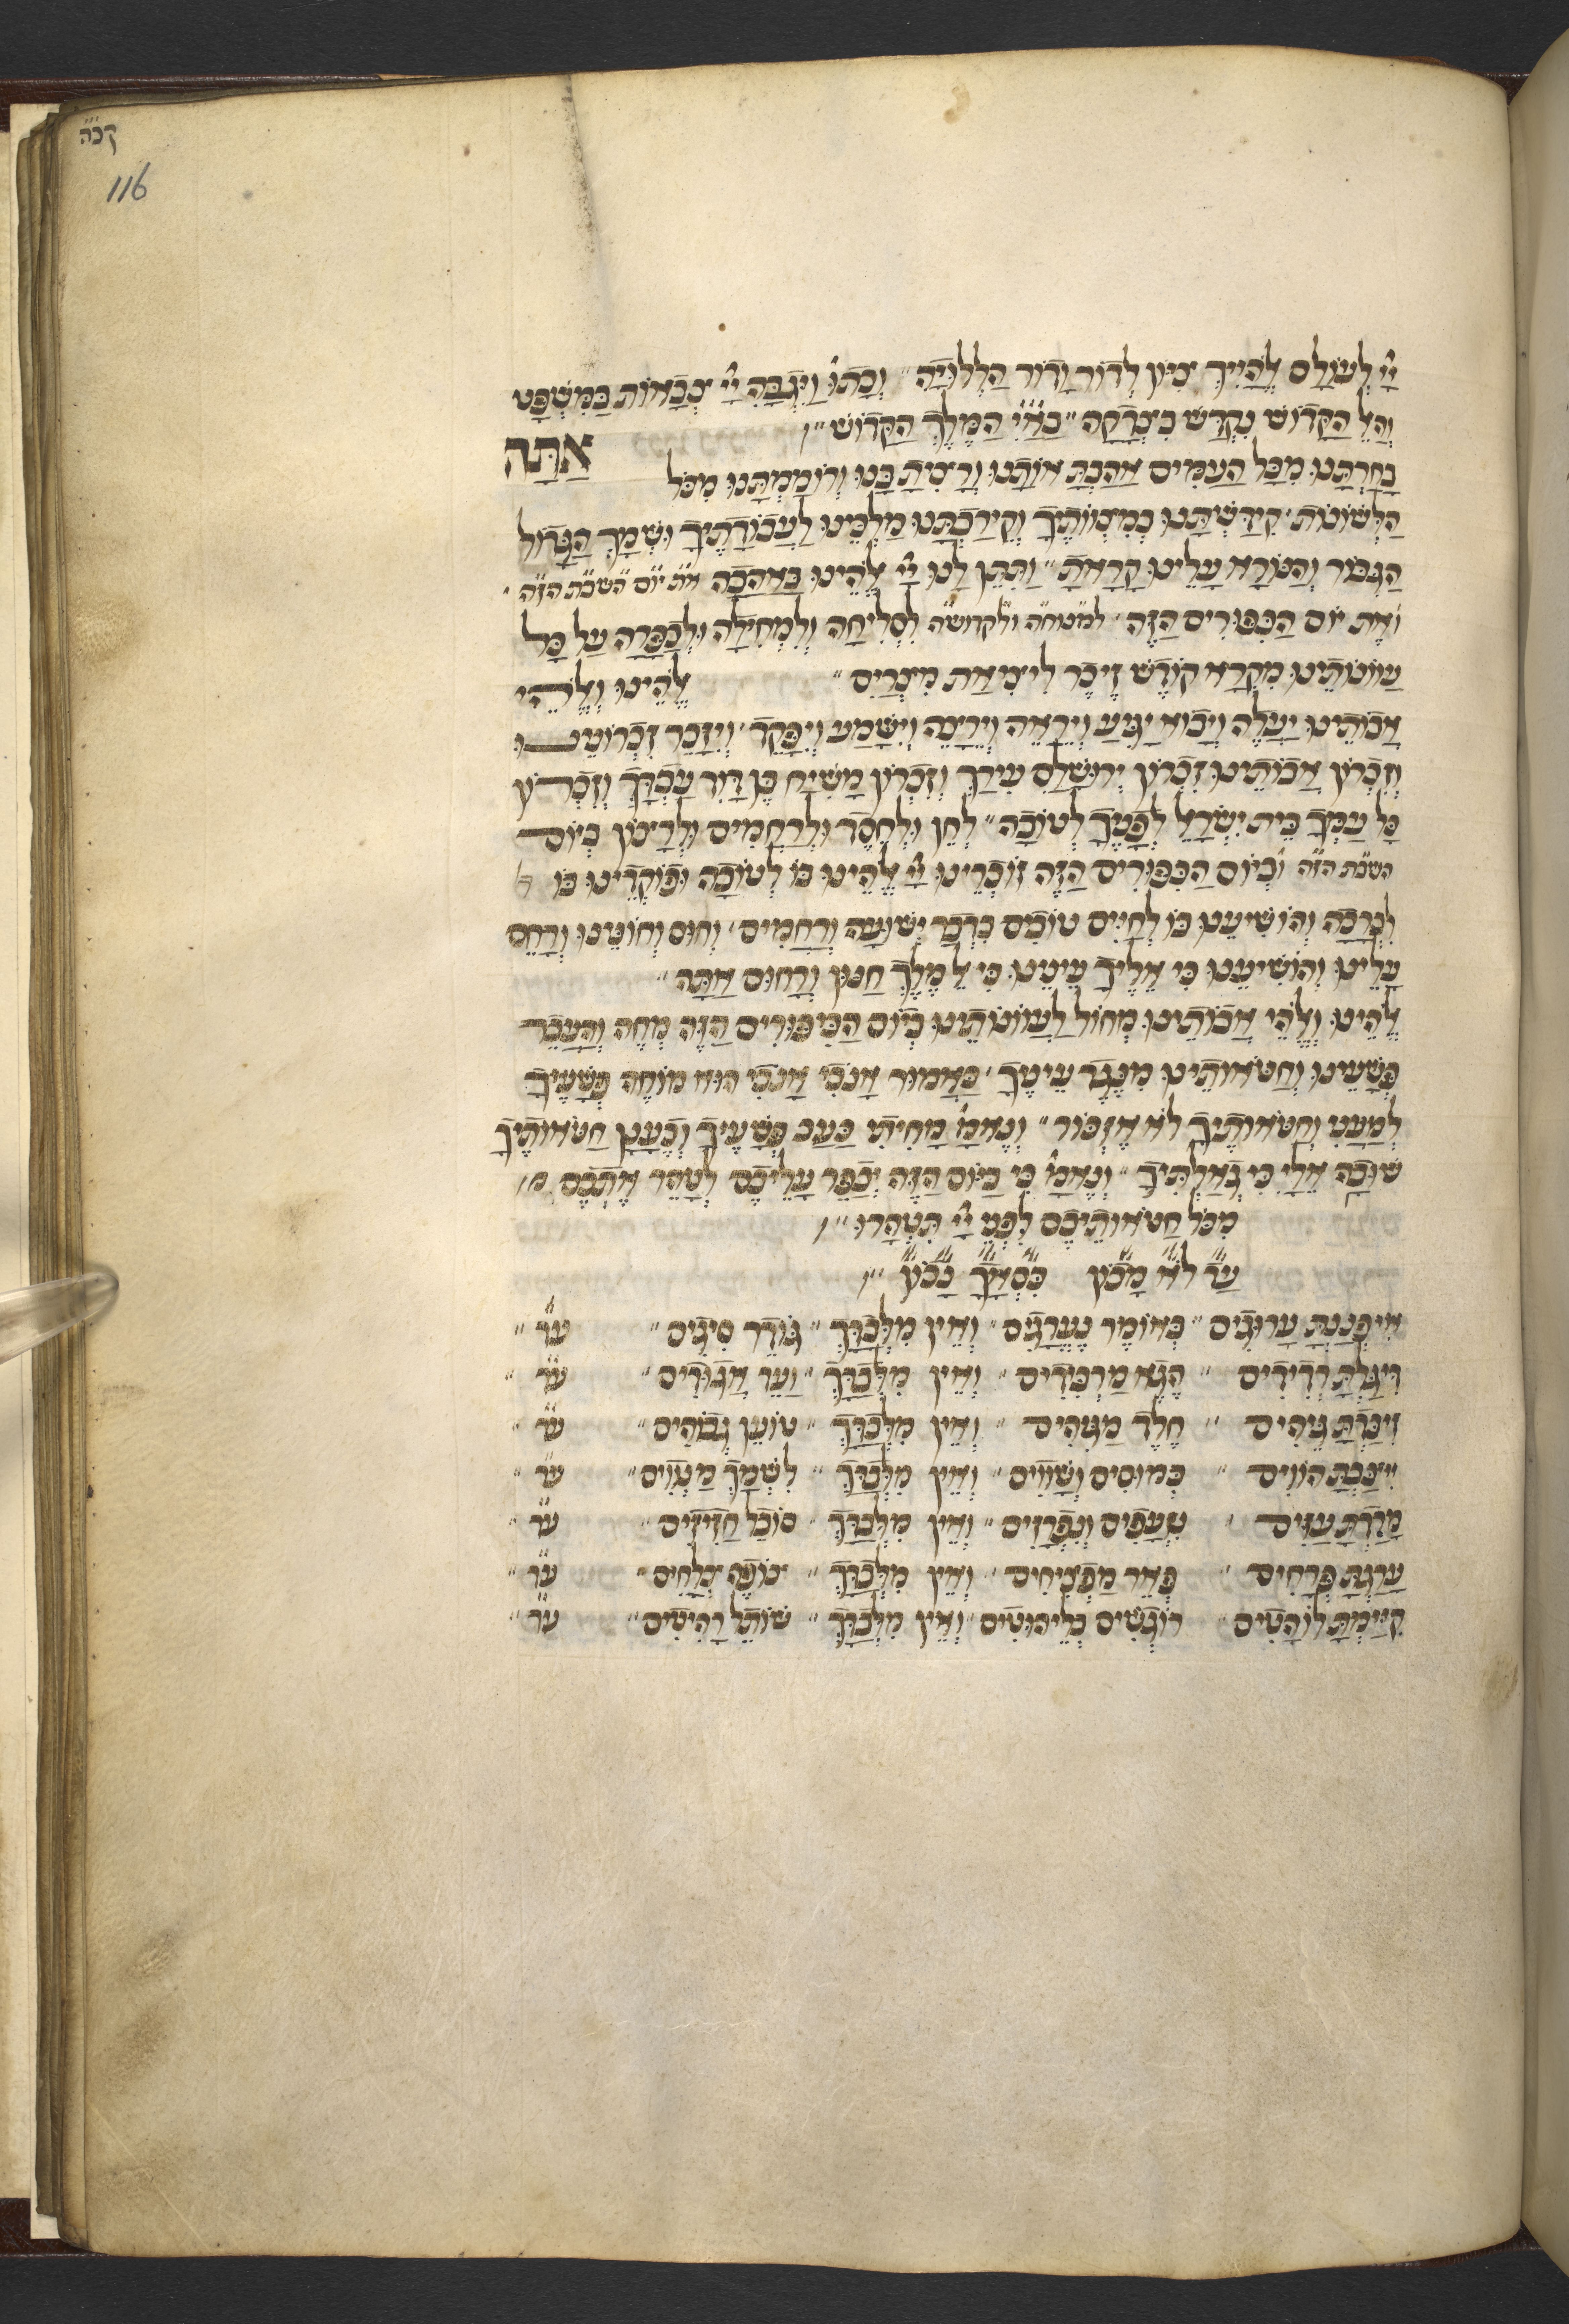 קכה
116
יי לעולם אלהייך ציון לדור ודור הללויה וכתו ויגבה יי צבאות במשפט
והאל הקדוש נקדש בצדקה באיי המלך הקדוש אתה
בחרתנו מכל העמים אהבת אותנו ורצית בנו ורוממתנו מכל
הלשונות קידשתנו במצוותיך וקירבתנו מלכינו לעבודתיך ושמך הגדול
הגבור והנורא עלינו קראת ותתן לנו יי אלהינו באהבה את יום השבת הזה
ואת יום הכפורים הזה למנוחה ולקדושה לסליחה ולמחילה ולכפרה על כל
עוונותינו מקרא קודש זיכר ליציאת מצרים אלהינו ואלהי
אבותינו יעלה ויבוא יגיע ויראה וירצה וישמע ויפקד ויזכר זכרונינו
וזכרון אבותינו זכרון ירושלם עירך וזכרון משיח בן דויד עבדך וזכרון
כל עמך בית ישראל לפניך לטובה לחן ולחסד ולרחמים ולרצון ביום
השבת הזה וביום הכפורים הזה זוכרינו יי אלהינו בו לטובה ופוקדינו בו
לברכה והושיענו בו לחיים טובים בדבר ישועה ורחמים וחוס וחונינו ורחם
עלינו והושיענו כי אליך עינינו כי אל מלך חנון ורחום אתה
אלהינו ואלהי אבותינו מחול לעוונותינו ביום הכיפורים הזה מחה והעבר
פשעינו וחטאותינו מנגד עיניך כאמור אנכי אנכי הוא מוחה פשעיך
למעני וחטאותיך לא אזכור ונאמ מחיתי כעב פשעיך וכענן חטאותיך
שובה אלי כי גאלתיך ונאמ כי ביום הזה יכפר עליכם לטהר אתכם
מכל חטאותיכם לפני יי תטהרו
עד לא מכון כסאך נכון
איפננת ערוגים כאומר נערגים ואין מלבדך גודר סיגים עד
דיגלת רדידים הנא מרפידים ואין מלבדך ועד אגודים עד
זיברת גיהים חלד מגיהים ואין מלבדך טוען גבוהים עד
ייצבת הווים כמוסים ושווים ואין מלבדך לשמך מצווים עד
מדדת עזים שעפים ונפרזים ואין מלבדך סובל חזיזים עד
ערגת פרחים פאר מפציחים ואין מלבדך צופה צלחים עד
קיימת לוהטים רוגשים כליהוטים ואין מלבדך שותל רהיטים עד